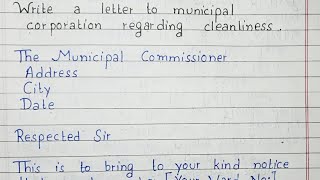 Write a letter to municipal
corporation regarding cleanliness.
The Municipal Commissioner
Address
City
Date
Respected Sir
This is to bring to your kind notice
[Your Ward No:]